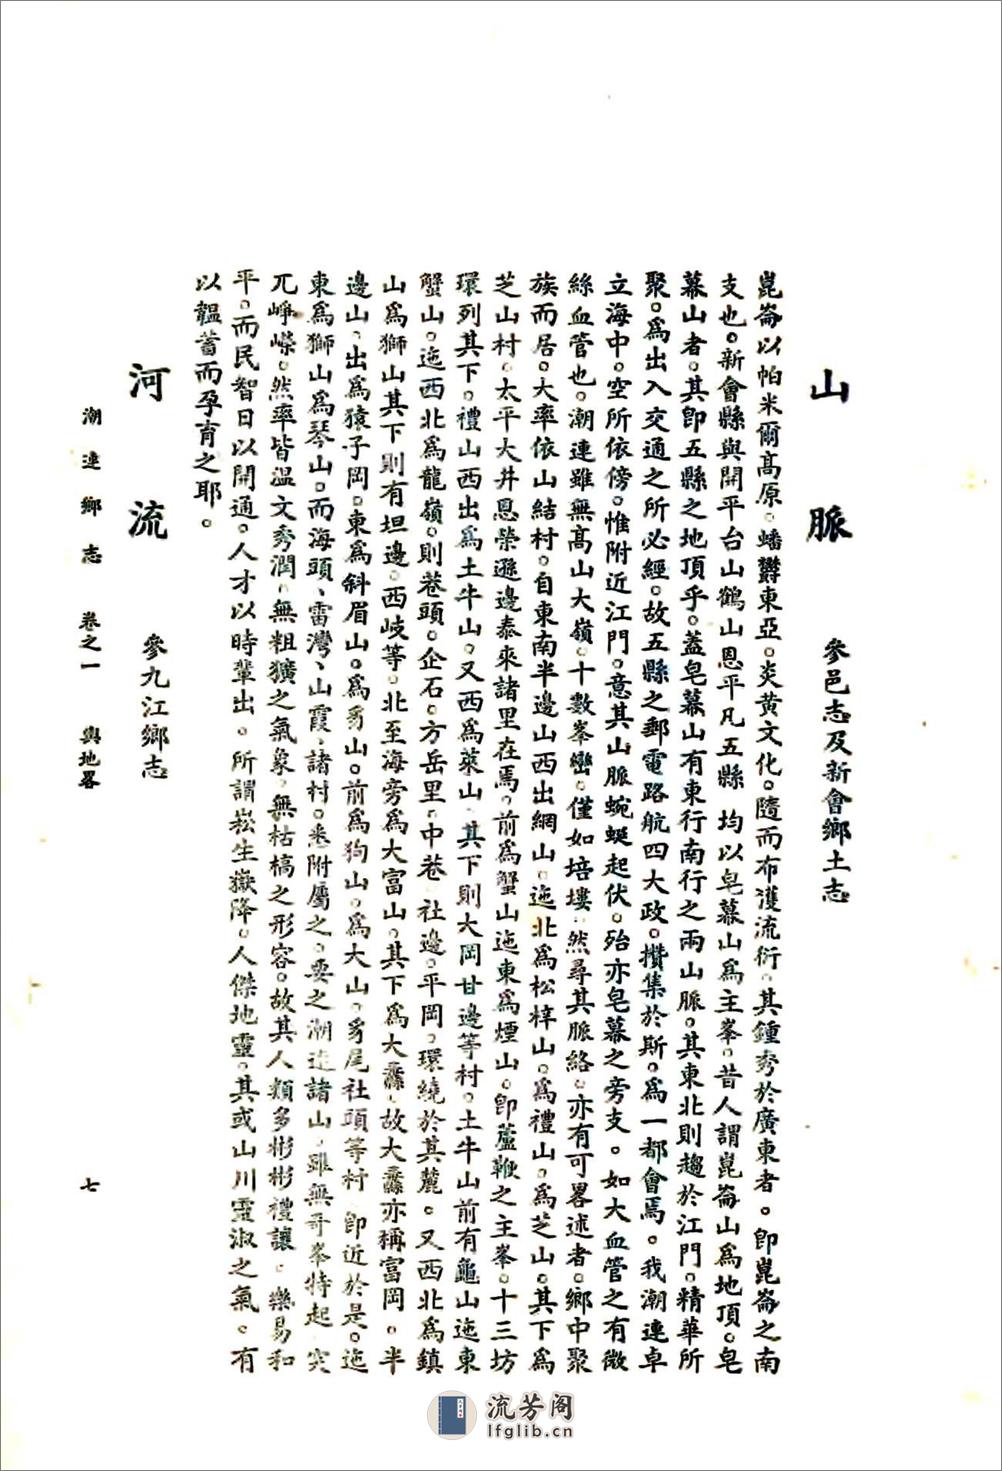 山脈　參邑志及新會鄉土志
崑崙以帕米爾高原。蟠鬱東亞。炎黃文化。隨而布濩流衍。其鍾秀於廣東者。卽崑崙之南
支也。新會縣與開平台山鶴山恩平凡五縣　均以皂幕山爲主峯。昔人謂崑崙山爲地頂。皂
幕山者。其卽五縣之地頂乎。蓋皂幕山有東行南行之兩山脈。其東北則趨於江門。精華所
聚。爲出入交通之所必經。故五縣之郵電路航四大政。攢集於斯。爲一都會焉。我潮連卓
立海中。空所依傍。惟附近江門。意其山脈蜿蜒起伏。殆亦皂幕之旁支。如大血管之有微
絲血管也。潮連雖無高山大嶺。十數峯巒。僅如培塿。然尋其脈絡。亦有可畧述者。鄉中聚
族而居。大率依山結村。自東南半邊山西出網山。迤北爲松梓山。爲禮山。爲芝山。其下爲
芝山村。太平大井恩榮遜邊泰來諸里在焉。前爲蟹山迤東爲煙山。卽蘆鞭之主峯。十三坊
環列其下。禮山西出爲土牛山。又西爲萊山　其下則大岡甘邊等村。土牛山前有龜山迤東
蟹山。迤西北爲龍嶺。則巷頭。企石。方岳里。中巷　社邊。平岡。環繞於其麓。又西北爲鎮
山爲獅山其下則有坦邊。西岐等。北至海旁爲大富山。其下爲大纛。故大纛亦稱富岡。半
邊山、出爲猿子岡。東爲斜眉山。爲豸山。前爲狗山。爲大山。豸尾社頭等村　卽近於是。迤
東爲獅山爲琴山。而海頭、雷灣、山霞、諸村。悉附屬之。要之潮連諸山、雖無奇峯特起　突
兀崢嶸。然率皆溫文秀潤、無粗獷之氣象、無枯槁之形容。故其人類多彬彬禮讓、樂易和
平。而民智日以開通。人才以時輩出。所謂崧生嶽降。人傑地靈。其或山川靈淑之氣。有
以韞蓄而孕育之耶。
河流　參九江鄉志
潮連鄉志　卷之一　輿地畧　七
流芳阁
lfglib.cn